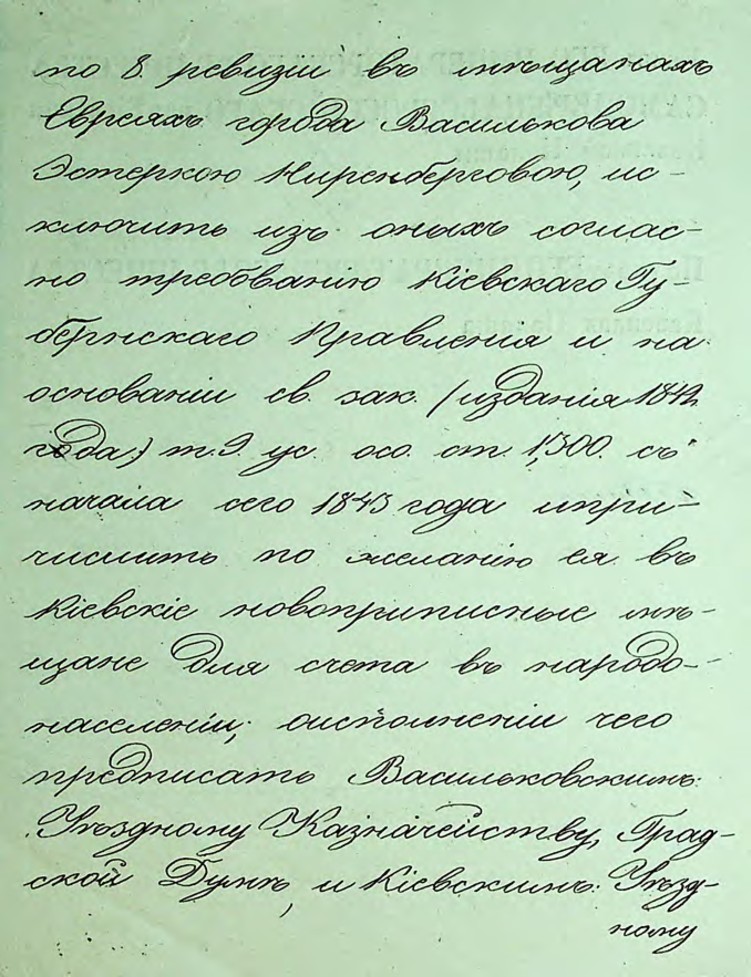 по 8. ревизіи въ мѣщанахъ
Евреяхъ города Василькова
Эстеркою Ниренберговою, ис-
ключить изъ оныхъ соглас-
но требованію Кіевскаго Гу-
бернскаго Правленія и на
основаніи св. зак. (изданія 1842
года) т. 9. ус. осо. ст. 1,500. съ
начала сего 1843 года и при-
числить по желанію ея въ
Кіевскіе новоприписные мѣ-
щане для счета въ народо-
населеніи; о исполненіи чего
предписать Васильковскимъ:
Уѣздному Казначейству, Град-
ской Думѣ, и Кіевскимъ: Уѣзд-
ному